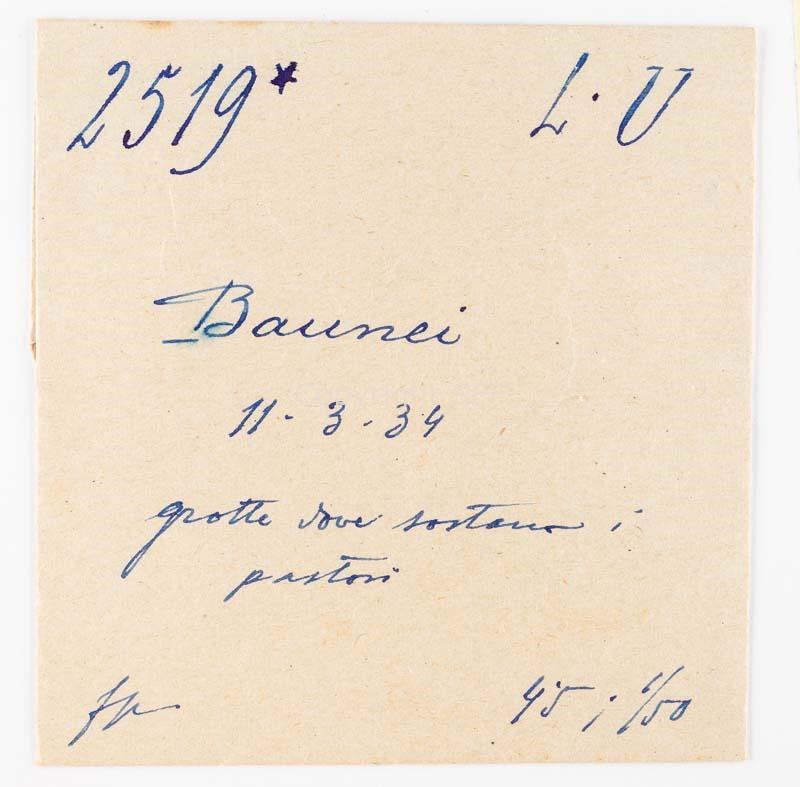 2519* L. U
Baunei
11-3-34
grotte dove sostano i
pastori
45; 1/50